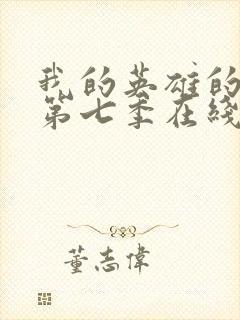 我的英雄的
第七季在线
董志偉